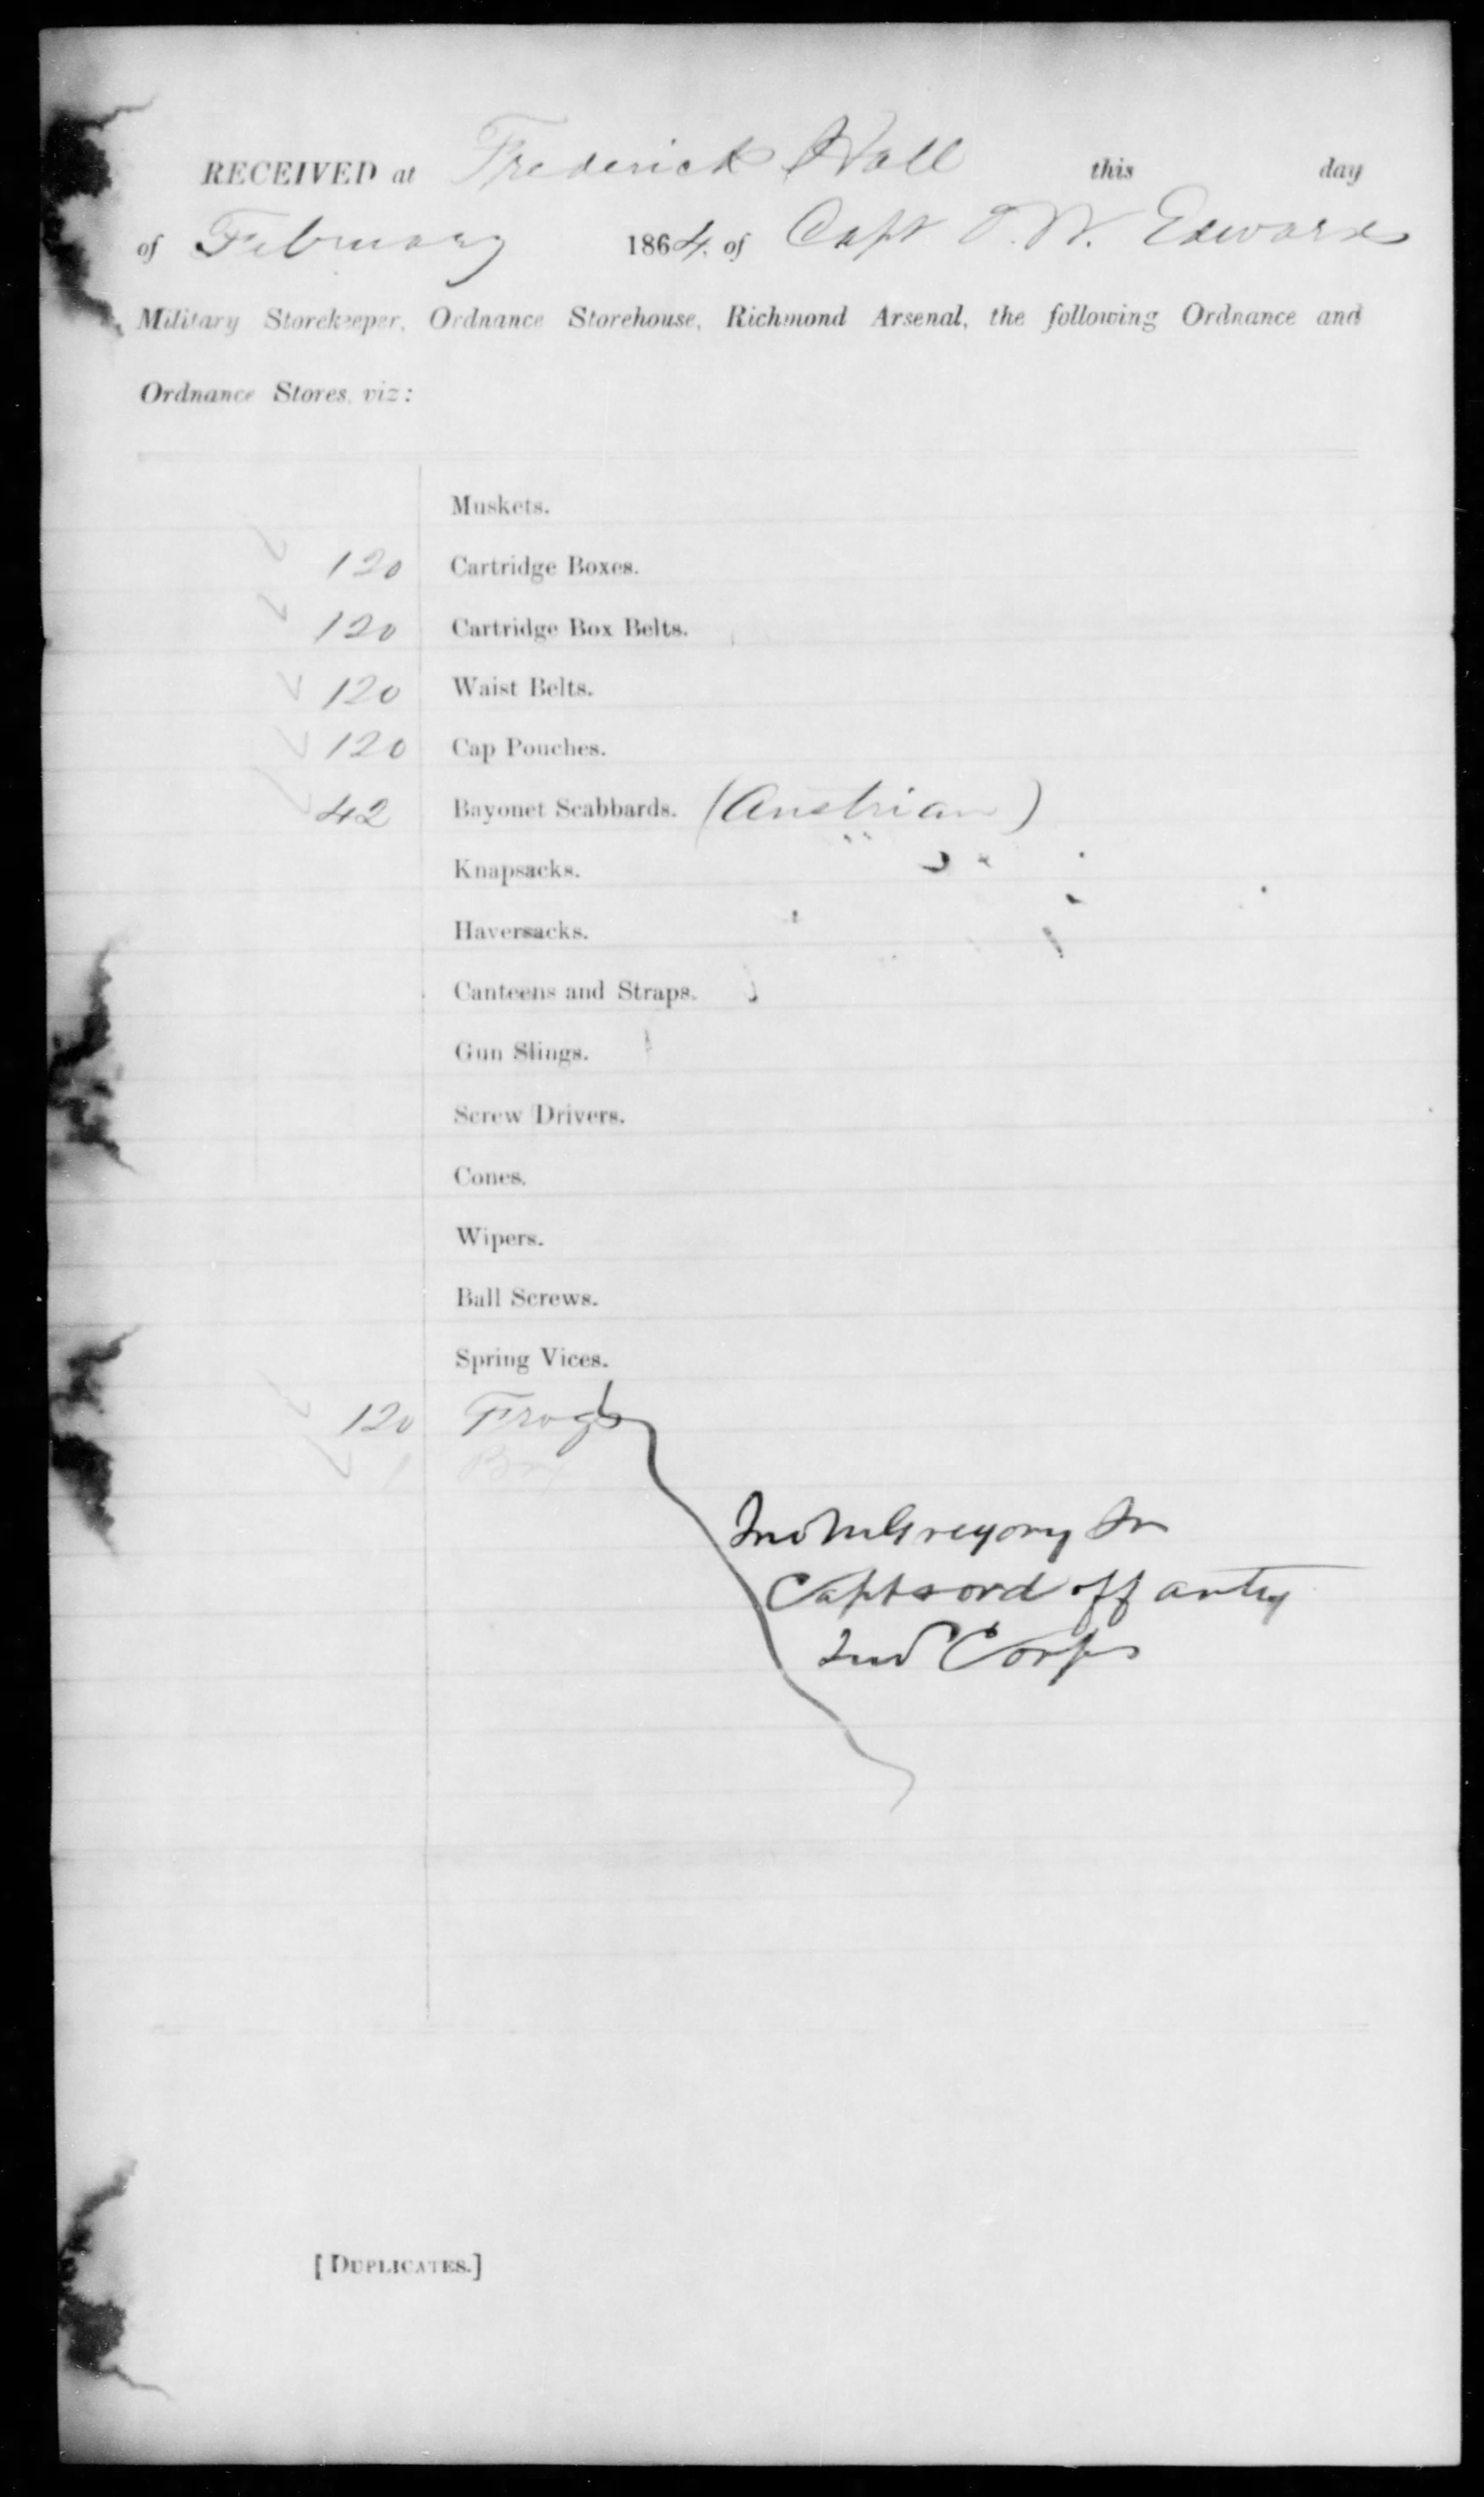 RECEIVED at Frederick Hall this day
of February 1864, of Capt O. W. Edwards
Military Storekeeper, Ordnance Storehouse, Richmond Arsenal, the following Ordnance and
Ordnance Stores, viz:
Muskets.
120 Cartridge Boxes.
120 Cartridge Box Belts.
120 Waist Belts.
120 Cap Pouches.
42 Bayonet Scabbards. (Austrian)
Knapsacks.
Haversacks.
Canteens and Straps.
Gun Slings.
Screw Drivers.
Cones.
Wipers.
Ball Screws.
Spring Vices.
120 Frogs
1 Box
Jno M Gregory Jr
Capt & ord off arty
2nd Corps
[DUPLICATES.]